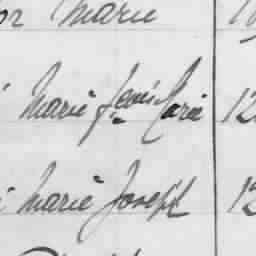 or Marie
Marie Louis Marie 12
Marie Joseph 12